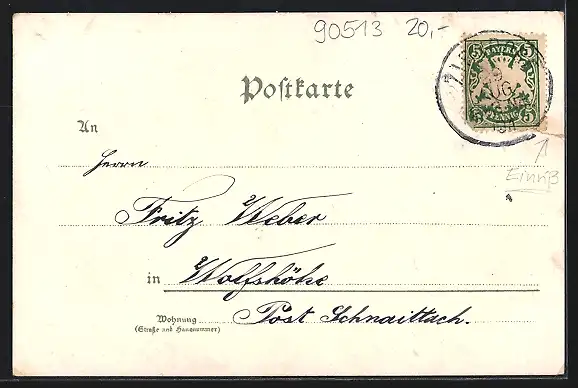 90513 20,-
BAYERN
5 5
AUG
5 PFENNIG 5
Postkarte
An
Einriß
Herrn
Fritz Weber
in Wolfshöhe
Post Schnaittach.
Wohnung
(Straße und Hausnummer)